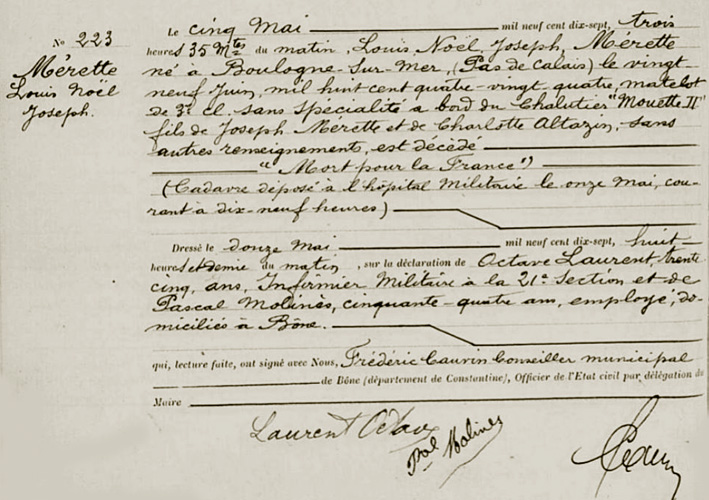 Nº 223
Mérette
Louis Noël
Joseph.
Le cinq Mai mil neuf cent dix-sept, trois
heures 35 Mtes du matin, Louis, Noël, Joseph, Mérette
né à Boulogne-Sur-Mer, (Pas de Calais) le vingt-
neuf Juin, mil huit cent quatre-vingt-quatre, matelot
de 3e cl. sans spécialité à bord du Chalutier "Mouette II"
fils de Joseph Mérette et de Charlotte Altazin, sans
autres renseignements, est décédé
"Mort pour la France")
(Cadavre déposé à l'hôpital Militaire le onze Mai, cou-
rant à dix-neuf heures)
Dressé le douze Mai mil neuf cent dix-sept, huit
heures et demie du matin, sur la déclaration de Octave Laurent, trente
cinq, ans, Infirmier Militaire à la 21e Section et de
Pascal Molinès, cinquante-quatre ans, employé, do-
miciliés à Bône.
qui, lecture faite, ont signé avec Nous, Frédéric Caurin Conseiller municipal
de Bône (département de Constantine), Officier de l'Etat civil par délégation du
Maire
Laurent Octave
Pal Molines